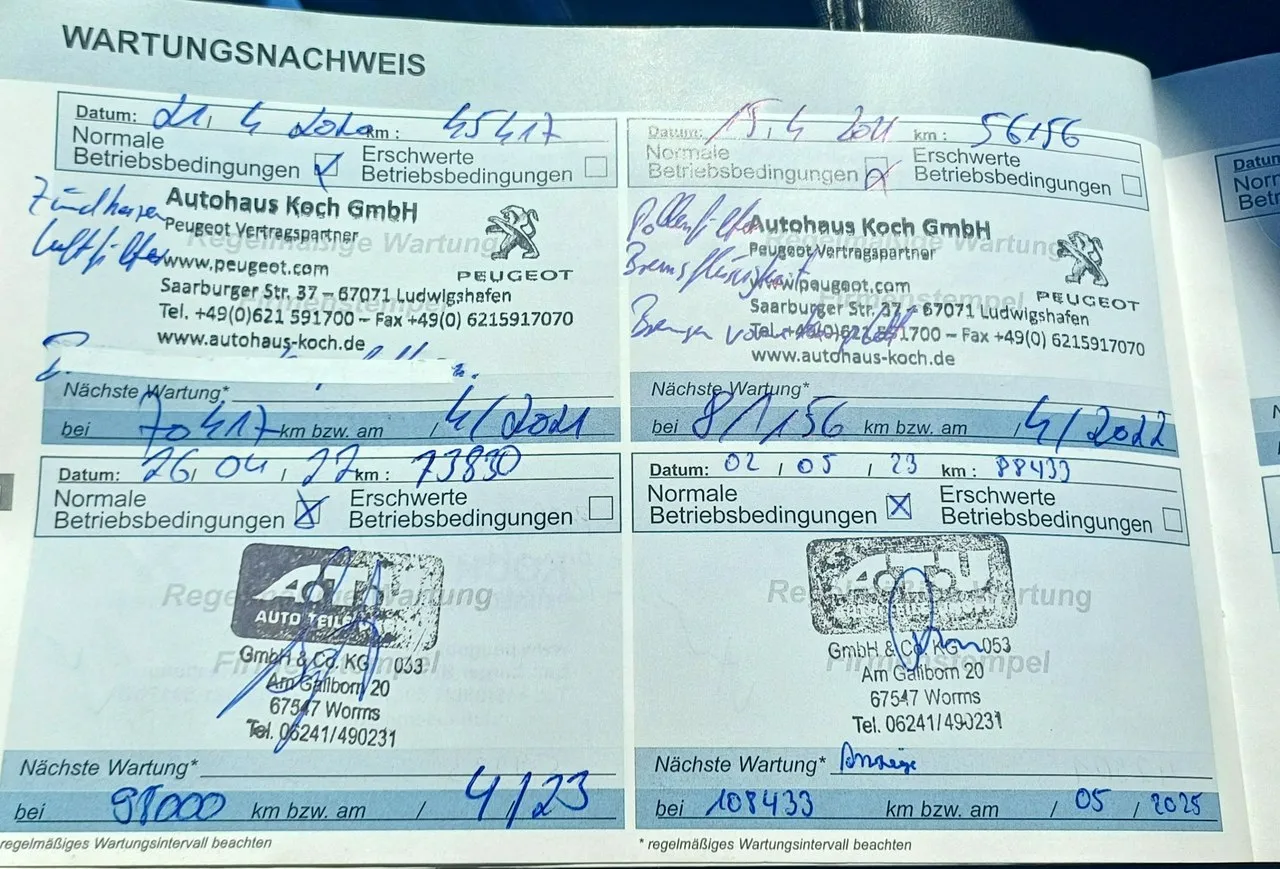 WARTUNGSNACHWEIS
Datum: 21, 4 2020 km : 45417
Normale
Betriebsbedingungen
Erschwerte
Betriebsbedingungen
Zündkerzen
Luftfilter
Autohaus Koch GmbH
Peugeot Vertragspartner
Regelmäßige Wartung
www.peugeot.com
PEUGEOT
Saarburger Str. 37 – 67071 Ludwigshafen
Firmenstempel
Tel. +49(0)621 591700 – Fax +49(0) 6215917070
www.autohaus-koch.de
Nächste Wartung*
bei 70417 km bzw. am / 4/2021
Datum: 15, 4 2021 km : 56156
Normale
Betriebsbedingungen
Erschwerte
Betriebsbedingungen
Pollenfilter
Bremsflüssigkeit
Bremsen
Autohaus Koch GmbH
Peugeot Vertragspartner
Regelmäßige Wartung
www.peugeot.com
PEUGEOT
Saarburger Str. 37 – 67071 Ludwigshafen
Firmenstempel
Tel. +49(0)621 591700 – Fax +49(0) 6215917070
www.autohaus-koch.de
Nächste Wartung*
bei 81156 km bzw. am / 4/2022
Datum: 26, 04 / 22 km : 73830
Normale
Betriebsbedingungen
Erschwerte
Betriebsbedingungen
Regelmäßige Wartung
A.T.U
AUTO TEILE
GmbH & Co. KG 053
Firmenstempel
Am Gallborn 20
67547 Worms
Tel. 06241/490231
Nächste Wartung*
bei 98000 km bzw. am / 4/23
regelmäßiges Wartungsintervall beachten
Datum: 02 / 05 / 23 km : 88433
Normale
Betriebsbedingungen
Erschwerte
Betriebsbedingungen
Regelmäßige Wartung
A.T.U
GmbH & Co. KG 053
Firmenstempel
Am Gallborn 20
67547 Worms
Tel. 06241/490231
Nächste Wartung* Anzeige
bei 108433 km bzw. am / 05 / 2025
* regelmäßiges Wartungsintervall beachten
Datum